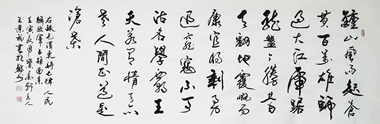 鍾山風雨起蒼
黄百萬雄師
過大江虎踞
龍盤今勝昔
天翻地覆慨而
慷宜將剩勇
追窮寇不可
沽名學霸王
天若有情天亦
老人間正道是
滄桑
右録毛澤東詩七律人民
解放軍占領南京